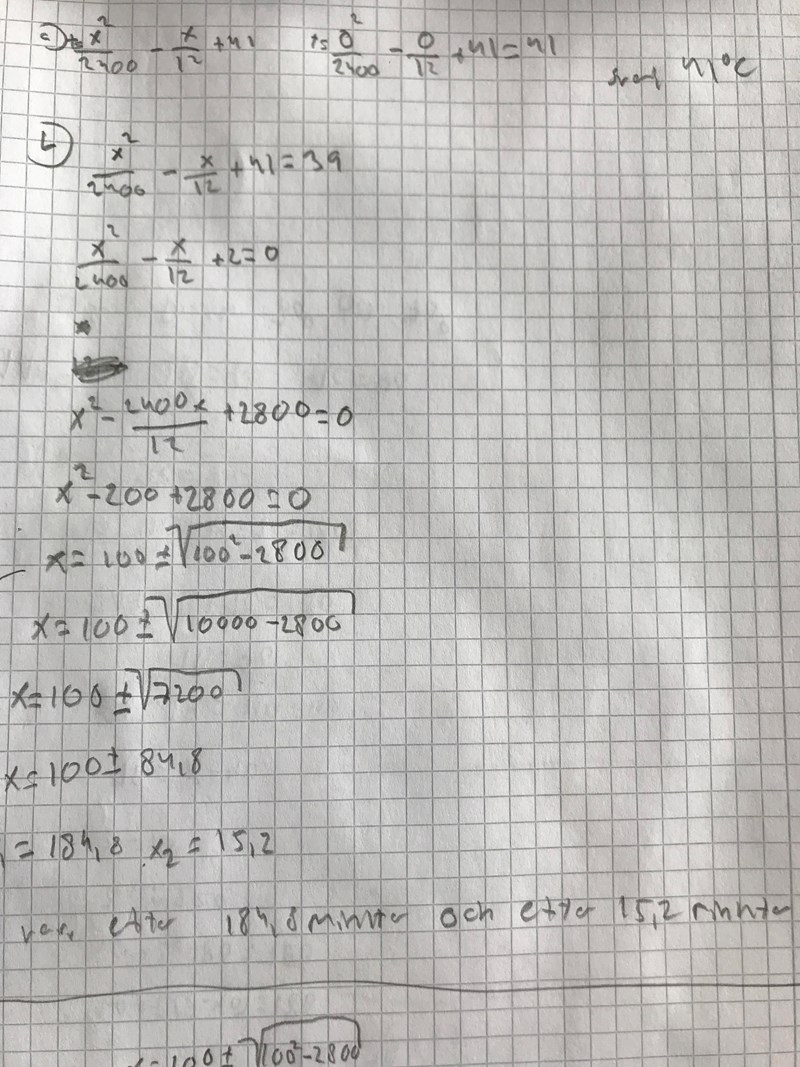 a) t= x²/2400 - x/12 + 41   t= 0²/2400 - 0/12 + 41 = 41   svar 41°C
b) x²/2400 - x/12 + 41 = 39
x²/2400 - x/12 + 2 = 0
x² - 2400x/12 + 2800 = 0
x² - 200 + 2800 = 0
x = 100 ± √(100² - 2800)
x = 100 ± √(10000 - 2800)
x = 100 ± √7200
x = 100 ± 84,8
= 184,8 x₂ = 15,2
efter 184,8 minuter och efter 15,2 minuter
x = 100 ± √(100² - 2800)